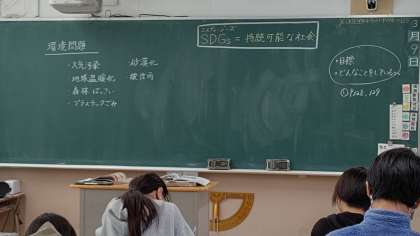 環境問題
・大気汚染
・地球温暖化
・森林ばっさい
・プラスチックごみ
・砂漠化
・酸性雨
エスディージーズ
SDGs = 持続可能な社会
・目標
・どんなことをしているか
3月9日